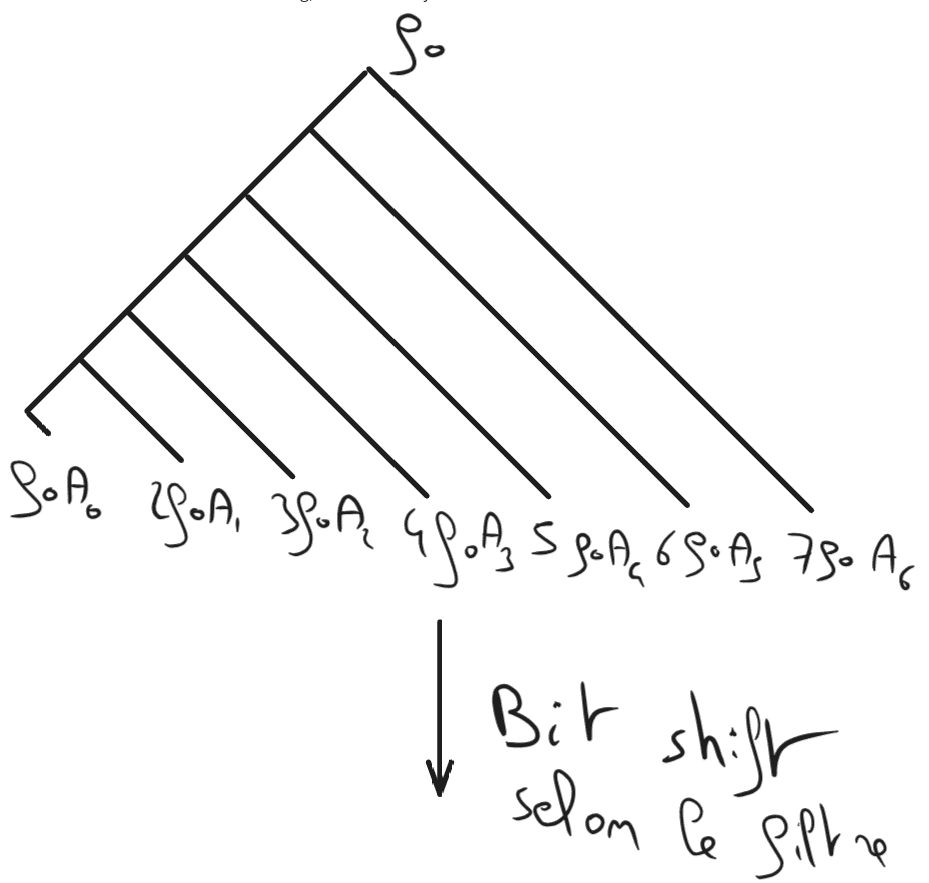 ρ₀
ρ₀A₀ 2ρ₀A₁ 3ρ₀A₂ 4ρ₀A₃ 5ρ₀A₄ 6ρ₀A₅ 7ρ₀A₆
Bit shift
selon le filtre